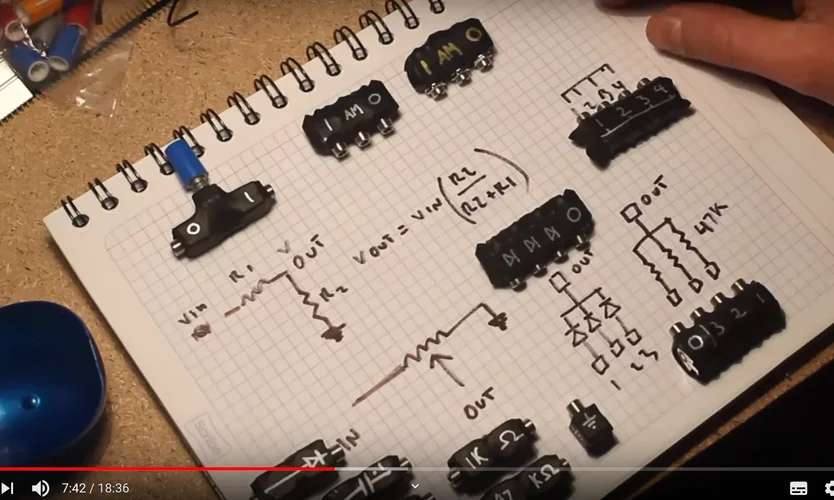 I AM O
I AM O
1 2 3 4
O I
VOUT = VIN (R2 / R2+R1)
OUT
47K
R1
V OUT
VIN
R2
O
OUT
O 3 2 1
1 2 3
OUT
IN
1K Ω
47 KΩ
7:42 / 18:36